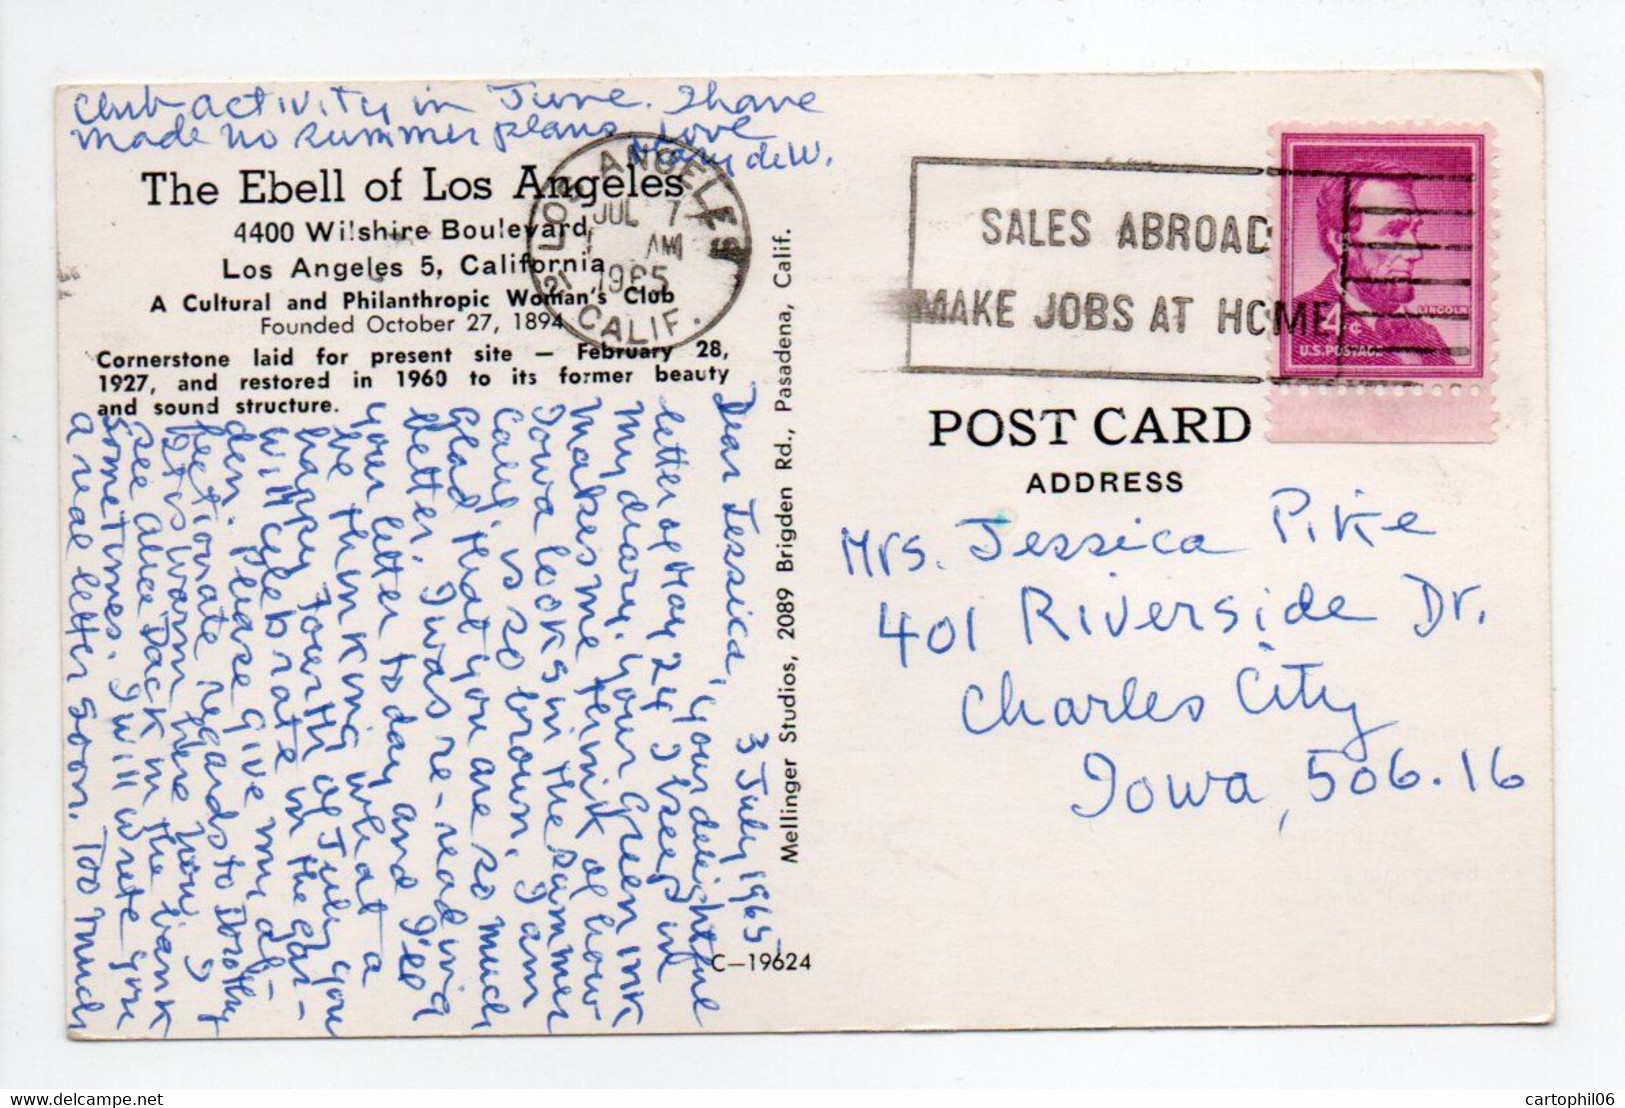 The Ebell of Los Angeles
4400 Wilshire Boulevard,
Los Angeles 5, California
A Cultural and Philanthropic Woman's Club
Founded October 27, 1894
Cornerstone laid for present site – February 28,
1927, and restored in 1960 to its former beauty
and sound structure.
3 July 1965
Dear Jessica, your delightful
letter of May 24 I keep in
my diary. Your green ink
makes me think of how
Iowa looks in the summer
Calif is so brown. I am
glad that you are so much
better. I was re-reading
your letter today and I'll
be thinking what a
happy Fourth of July you
will celebrate in the gar-
den. Please give my af-
fectionate regards to Dorothy
It is warm here now. I
see Alice Dack in the bank
sometimes. I will write you
a real letter soon. Too much
club activity in June. I have
made no summer plans. Love
Mary deW.
Mellinger Studios, 2089 Brigden Rd., Pasadena, Calif.
C–19624
LOS ANGELES
JUL 7
AM
1965
CALIF.
SALES ABROAD
MAKE JOBS AT HOME
LINCOLN
4c
U.S. POSTAGE
POST CARD
ADDRESS
Mrs. Jessica Pike
401 Riverside Dr.
Charles City
Iowa, 506.16
delcampe.net
cartophil06